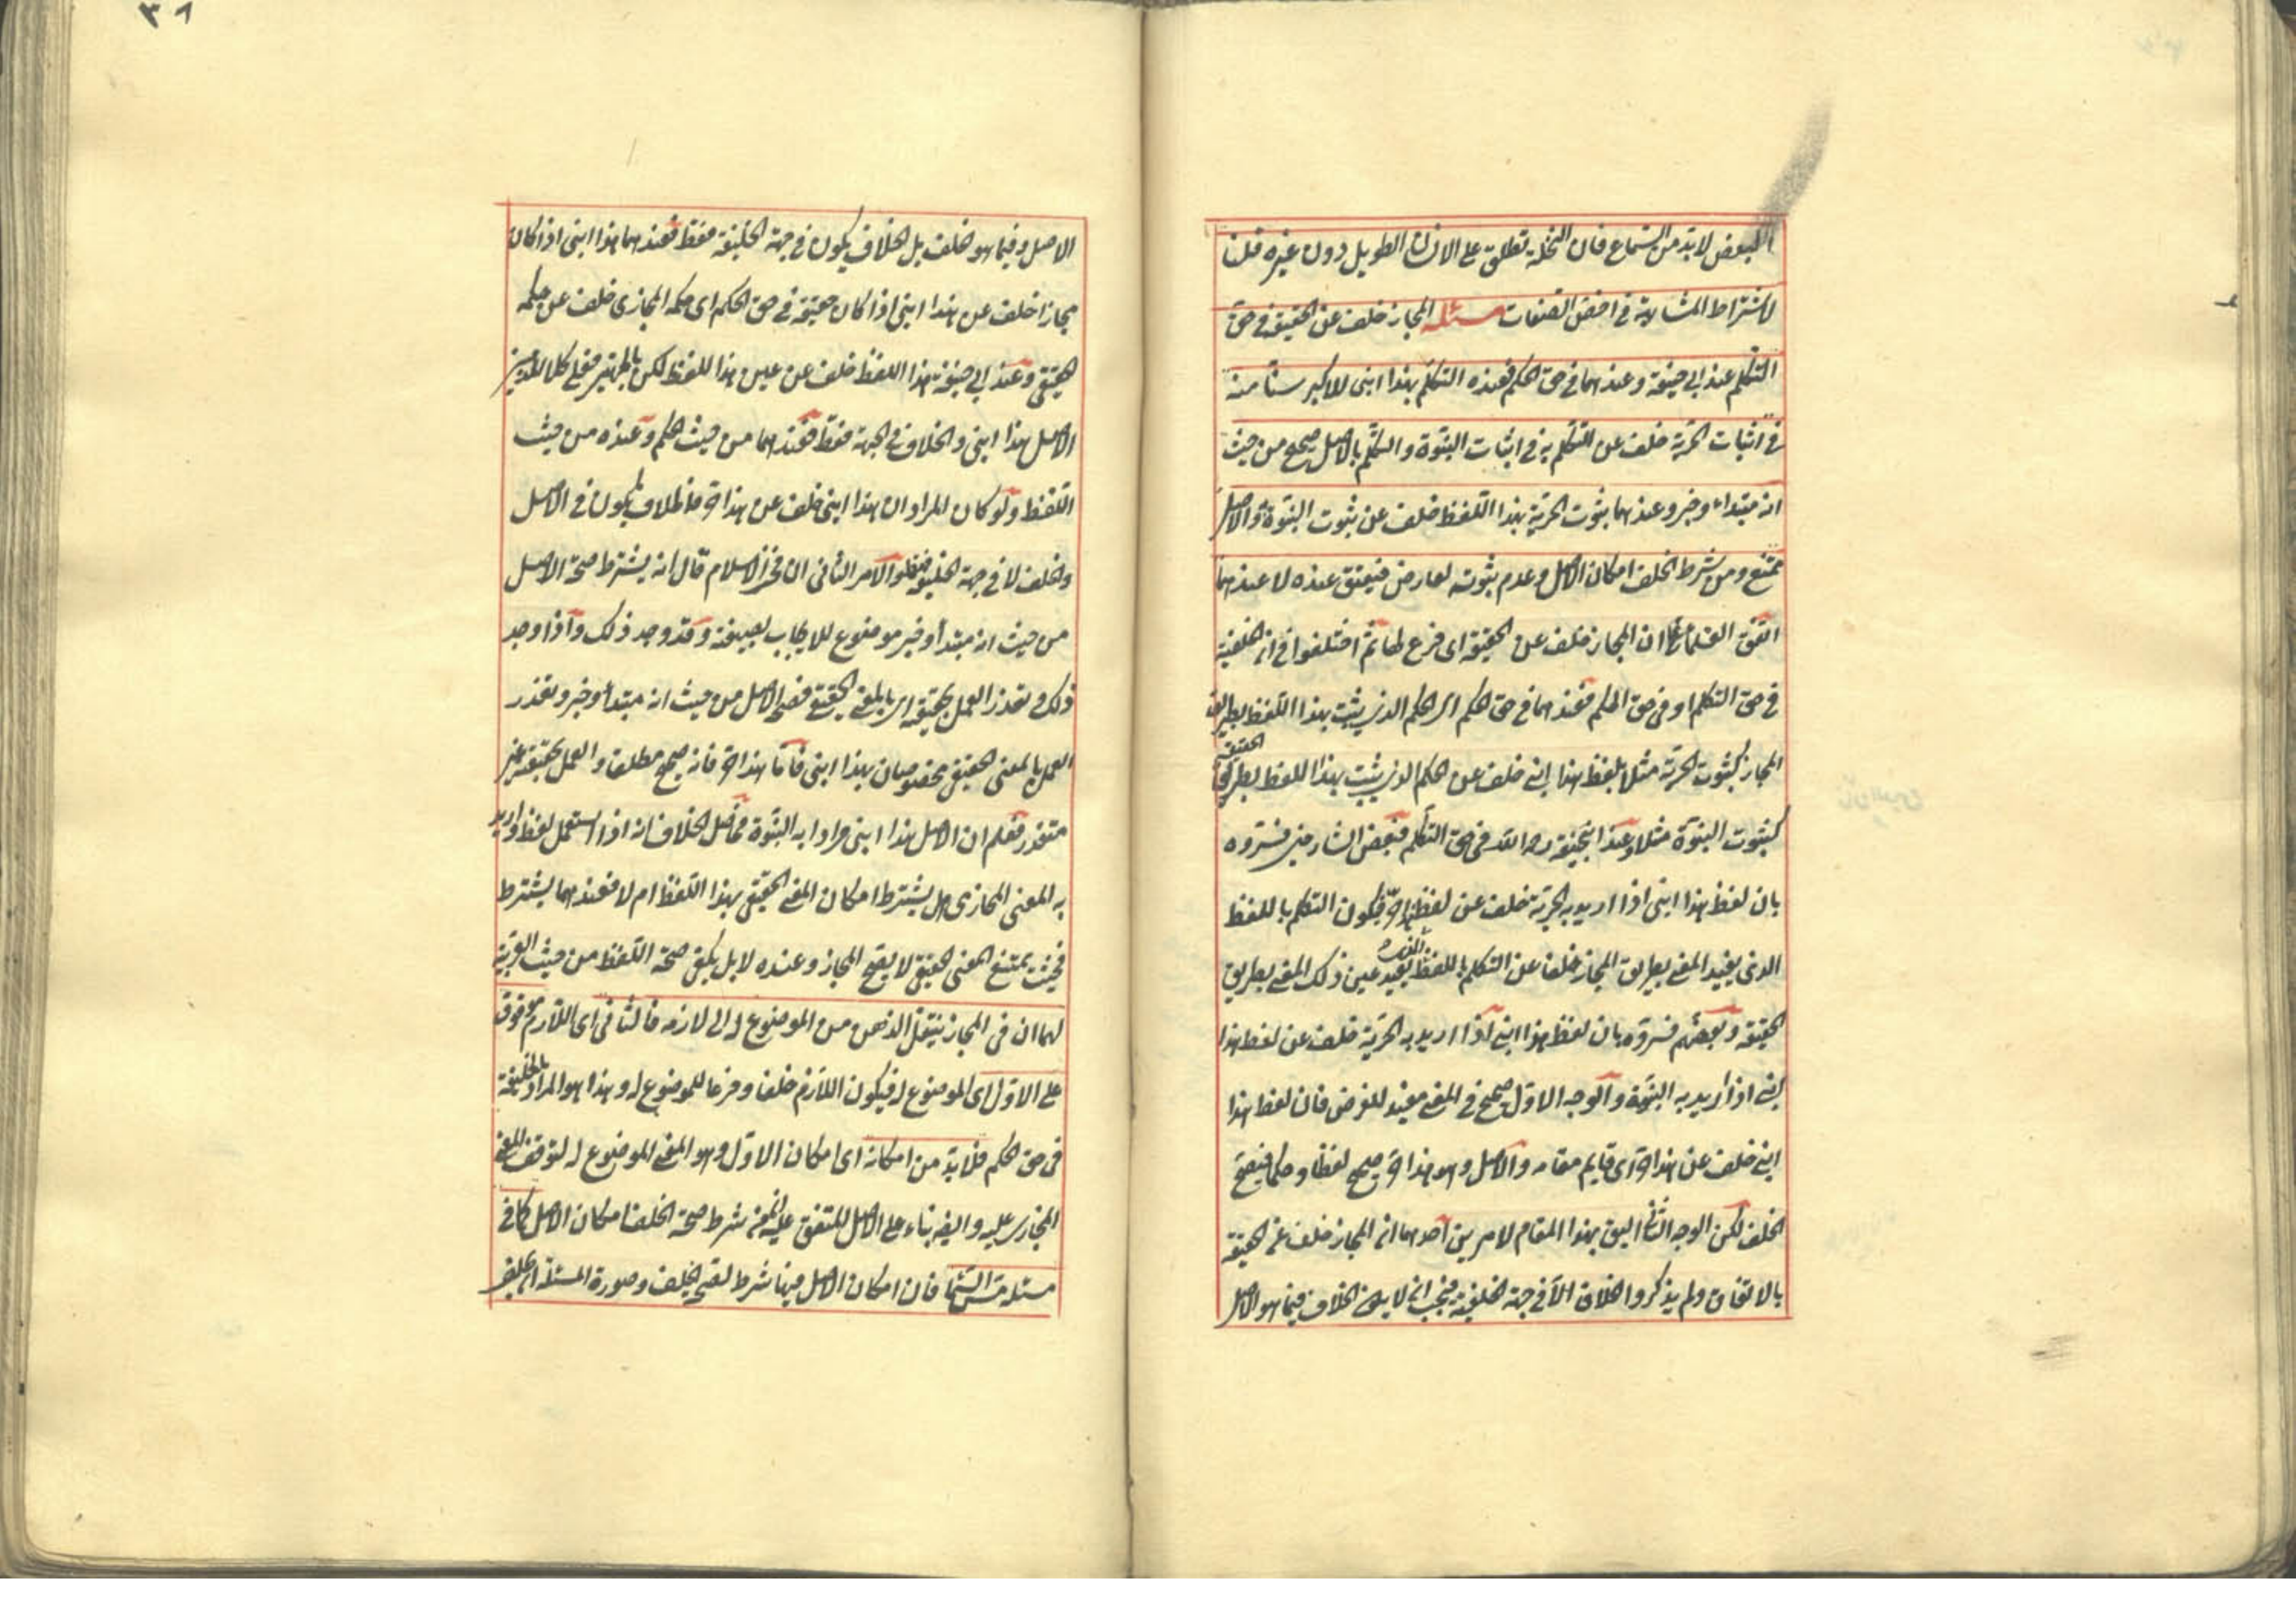 البعض لا بد من السماع فان النخلة تطلق على الانسان الطويل دون غيره قلنا
لاشتراط المشابهة في اخص الصفات مسئلة المجاز خلف عن الحقيقة في حق
التكلم عند ابي حنيفة وعندهما في حق الحكم فعنده التكلم بهذا ابني للاكبر سنا منه
في اثبات الحرية خلف عن التكلم به في اثبات البنوة والتكلم بالاصل صحيح من حيث
انه مبتداء وخبر وعندهما ثبوت الحرية بهذا اللفظ خلف عن ثبوت البنوة والاصل
ممتنع ومن شرط الخلف امكان الاصل وعدم ثبوته لعارض فيعتق عنده لا عندهما
اتفق العلماء ان المجاز خلف عن الحقيقة اى فرع لها ثم اختلفوا في ان الخلفية
في حق التكلم او في حق الحكم فعندهما في حق الحكم اى الحكم الذي يثبت بهذا اللفظ بطريق
المجاز كثبوت الحرية مثلا بلفظ هذا ابني خلف عن الحكم الذي يثبت بهذا اللفظ بطريق
الحقيقة
كثبوت البنوة مثلا وعند ابيحنيفة رحمه الله في حق التكلم فبعض الشارحين فسروه
بان لفظ هذا ابني اذا اريد به الحرية خلف عن لفظ هذا حر فيكون التكلم باللفظ
الذي يفيد المعنى بطريق المجاز خلفا عن التكلم باللفظ الذي يفيد عين ذلك المعنى بطريق
الحقيقة وبعضهم فسروه بان لفظ هذا ابني اذا اريد به الحرية خلف عن لفظ هذا
ابني اذا اريد به البنوة والوجه الاول صحيح في المعنى مفيد للغرض فان لفظ هذا
ابني خلف عن هذا حر اى قايم مقامه والاصل وهو هذا حر صحيح لفظا وحكما فيصح
الخلف لكن الوجه الثاني اليق بهذا المقام لامرين احدهما ان المجاز خلف عن الحقيقة
بالاتفاق ولم يذكروا الخلاف الا في جهة الخلفية فيجب ان لا يكون الخلاف فيما هو الاصل
٣٨
الاصل وفيما هو خلف بل الخلاف يكون في جهة الخليفة فقط فعندهما هذا ابني اذا كان
مجازا خلف عن هذا ابني اذا كان حقيقة في حق الحكم اى حكمه المجازى خلف عن حكمه
الحقيقي وعند ابي حنيفة هذا اللفظ خلف عن عين هذا اللفظ لكن بالجهتين فعلى كلا المذهبين
الاصل هذا ابني والخلاف في الجهة فقط فعندهما من حيث الحكم وعنده من حيث
اللفظ ولو كان المراد ان هذا ابني خلف عن هذا حر فالخلاف يكون في الاصل
والخلف لا في جهة الخليفة الامر الثاني ان فخر الاسلام قال انه يشترط صحة الاصل
من حيث انه مبتدأ وخبر موضوع للايجاب بصيغته وقد وجد ذلك واذا وجد
ذلك وتعذر العمل بحقيقته اى بالمعنى الحقيقي فصح الاصل من حيث انه مبتدأ وخبر وتعذر
العمل بالمعنى الحقيقي مخصوصان بهذا ابني فاما هذا حر فانه صحيح مطلقا والعمل بحقيقته غير
متعذر فعلم ان الاصل هذا ابني مرادا به البنوة فحاصل الخلاف انه اذا استعمل لفظ واريد
به المعنى المجازى هل يشترط امكان المعنى الحقيقي بهذا اللفظ ام لا فعندهما يشترط
فحيث يمتنع المعنى الحقيقي لا يصح المجاز وعنده لا بل يكفي صحة اللفظ من حيث العربية
لهما ان في المجاز ينتقل الذهن من الموضوع له الى لازمه فالثاني اى اللازم موقوف
على الاول اى الموضوع له فيكون اللازم خلفا وفرعا للموضوع له وهذا هو المراد بالخليفة
في حق الحكم فلا بد من امكانه اى امكان الاول وهو المعنى الموضوع له لتوقف المعنى
المجازى عليه وايضا بناء على الاصل المتفق عليه ان من شرط صحة الخلف امكان الاصل كما في
مسئلة مس السماء فان امكان الاصل فيها شرط لصحة الخلف وصورة المسئلة